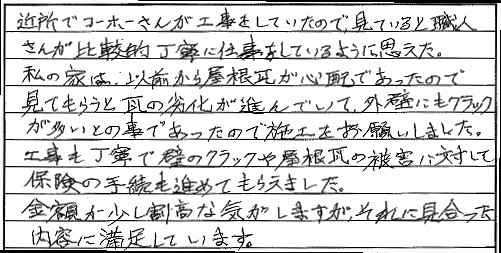 近所でコーホーさんが工事をしていたので、見ていると職人
さんが比較的丁寧に仕事をしているように思えた。
私の家は、以前から屋根瓦が心配であったので
見てもらうと瓦の劣化が進んでいて、外壁にもクラック
が多いとの事であったので施工をお願いしました。
工事も丁寧で壁のクラックや屋根瓦の被害に対して
保険の手続も進めてもらえました。
金額が少し割高な気がしますが、それに見合った
内容に満足しています。